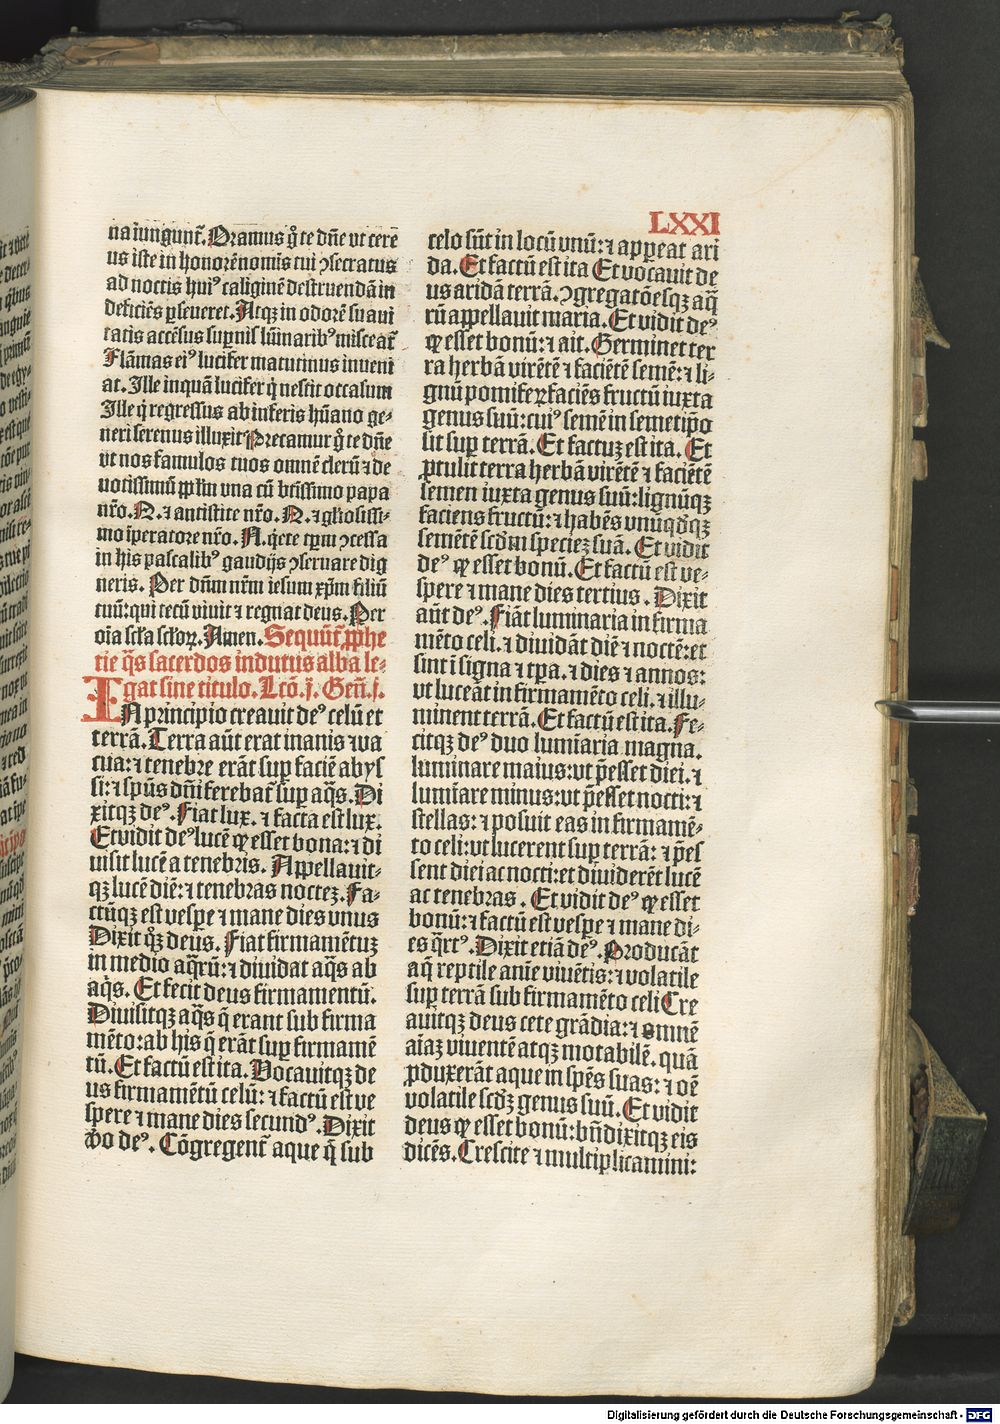 LXXI
na iungunt᷑. Oramus g̊ te dñe vt cerē
us iste in honorē nomĩs tui ꝯsecratus
ad noctis huiꝰ caliginē destruendā in
deficiēs ꝑseueret. Atqꝫ in odorē suaui
tatis accēsus suꝑnis lūinaribꝰ misceat᷑
Flāmas eiꝰ lucifer matutinus inueni
at. Ille inquā lucifer q̇ nescit occasum
Ille q̇ regressus ab inferis hūano ge-
neri serenus illuxit Precamur g̊ te dñe
vt nos famulos tuos omnē clerū ⁊ de
uotissimū pplm̄ vna cū btīssimo papa
nr̄o. N. ⁊ antistite nr̄o. N. ⁊ gliosissi-
mo ip̄eratore nr̄o. N. q̇ete tp̄m ꝯcessa
in his pascalibꝰ gaudijs ꝯseruare dig
neris. Per dn̄m nr̄m iesum xp̄m filiū
tuū: qui tecū viuit ⁊ regnat deus. Per
oīa scl̄a scl̄oꝝ. Amen. Sequūt᷑ ꝓphe
tie q̄s sacerdos indutus alba le-
gat sine titulo. Lcō. j̄. Geñ. j.
IN principio creauit deꝰ celū et
terrā. Terra aūt erat inanis ⁊ va
cua: ⁊ tenebre erāt suꝑ faciē abys
si: ⁊ spūs dn̄i ferebat᷑ suꝑ aq̄s. Di
xitqꝫ deꝰ. Fiat lux. ⁊ facta est lux.
Et vidit deꝰ lucē ꝙ esset bona: ⁊ di
uisit lucē a tenebris. Appellauit-
qꝫ lucē diē: ⁊ tenebras noctez. Fa-
ctūqꝫ est vespe ⁊ mane dies vnus
Dixit qꝫ deus. Fiat firmamētuz
in medio aq̄rū: ⁊ diuidat aq̄s ab
aq̄s. Et fecit deus firmamentū.
Diuisitqꝫ aq̄s q̄ erant sub firma
mēto: ab his q̄ erāt suꝑ firmamē
tū. Et factū est ita. Vocauitqꝫ de
us firmamētū celū: ⁊ factū est ve
spere ⁊ mane dies secundꝰ. Dixit
v̊o deꝰ. Cōgregent᷑ aque q̄ sub
celo sūt in locū vnū: ⁊ appeat ari
da. Et factū est ita Et vocauit de
us aridā terrā. ꝯgregatōesqꝫ aq̄
rū appellauit maria. Et vidit deꝰ
ꝙ esset bonū: ⁊ ait. Germinet ter
ra herbā virētē ⁊ faciētē semē: ⁊ li-
gnū pomifeꝝ faciēs fructū iuxta
genus suū: cuiꝰ semē in semetip̄o
sit suꝑ terrā. Et factuz est ita. Et
ꝓtulit terra herbā virētē ⁊ faciētē
semen iuxta genus suū: lignūqꝫ
faciens fructū: ⁊ habēs vnūq̊dqꝫ
semētē scdm̄ speciez suā. Et vidit
deꝰ ꝙ esset bonū. Et factū est ve-
spere ⁊ mane dies tertius. Dixit
aūt deꝰ. Fiāt luminaria in firma
mēto celi. ⁊ diuidāt diē ⁊ noctē: et
sint ī signa ⁊ tp̄a. ⁊ dies ⁊ annos:
vt luceāt in firmamēto celi. ⁊ illu-
minent terrā. Et factū est ita. Fe-
citqꝫ deꝰ duo lumīaria magna.
luminare maius: vt p̄esset diei. ⁊
lumīare minus: vt p̄esset nocti: ⁊
stellas: ⁊ posuit eas in firmamē-
to celi: vt lucerent suꝑ terrā: ⁊ p̄es
sent diei ac nocti: et diuiderēt lucē
ac tenebras. Et vidit deꝰ ꝙ esset
bonū: ⁊ factū est vespe ⁊ mane di-
es q̄rtꝰ. Dixit etiā deꝰ. Producāt
aq̄ reptile anīe viuētis: ⁊ volatile
suꝑ terrā sub firmamēto celi Cre
auitqꝫ deus cete grādia: ⁊ omnē
aīaꝫ viuentē atqꝫ motabilē. quā
ꝓduxerāt aque in spēs suas: ⁊ oē
volatile scdꝫ genus suū. Et vidit
deus ꝙ esset bonū: bn̄dixitqꝫ eis
dicēs. Crescite ⁊ multiplicamini:
Digitalisierung gefördert durch die Deutsche Forschungsgemeinschaft - DFG